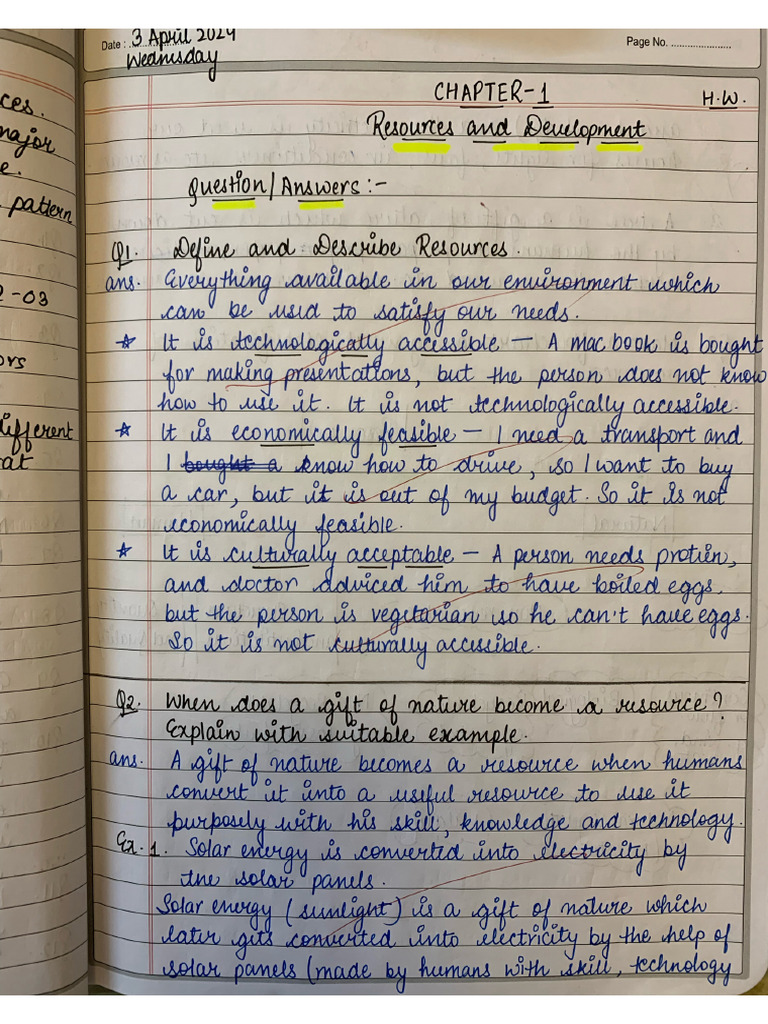 ces.
major
e.
pattern
2-03
ors
different
at
Date : 3 April 2024
Wednesday
Page No. ....................
CHAPTER-1
H.W.
Resources and Development
Question/Answers :-
Q1. Define and Describe Resources.
ans. Everything available in our environment which
can be used to satisfy our needs.
☆ It is technologically accessible — A mac book is bought
for making presentations, but the person does not know
how to use it. It is not technologically accessible.
☆ It is economically feasible — I need a transport and
I bought a know how to drive, so I want to buy
a car, but it is out of my budget. So it is not
economically feasible.
☆ It is culturally acceptable — A person needs protien,
and doctor adviced him to have boiled eggs,
but the person is vegetarian so he can't have eggs.
So it is not culturally accessible.
Q2. When does a gift of nature become a resource?
Explain with suitable example.
ans. A gift of nature becomes a resource when humans
convert it into a useful resource to use it
purposely with his skill, knowledge and technology.
Ex. 1. Solar energy is converted into electricity by
the solar panels.
Solar energy (sunlight) is a gift of nature which
later gits converted into electricity by the help of
solar panels (made by humans with skill, technology